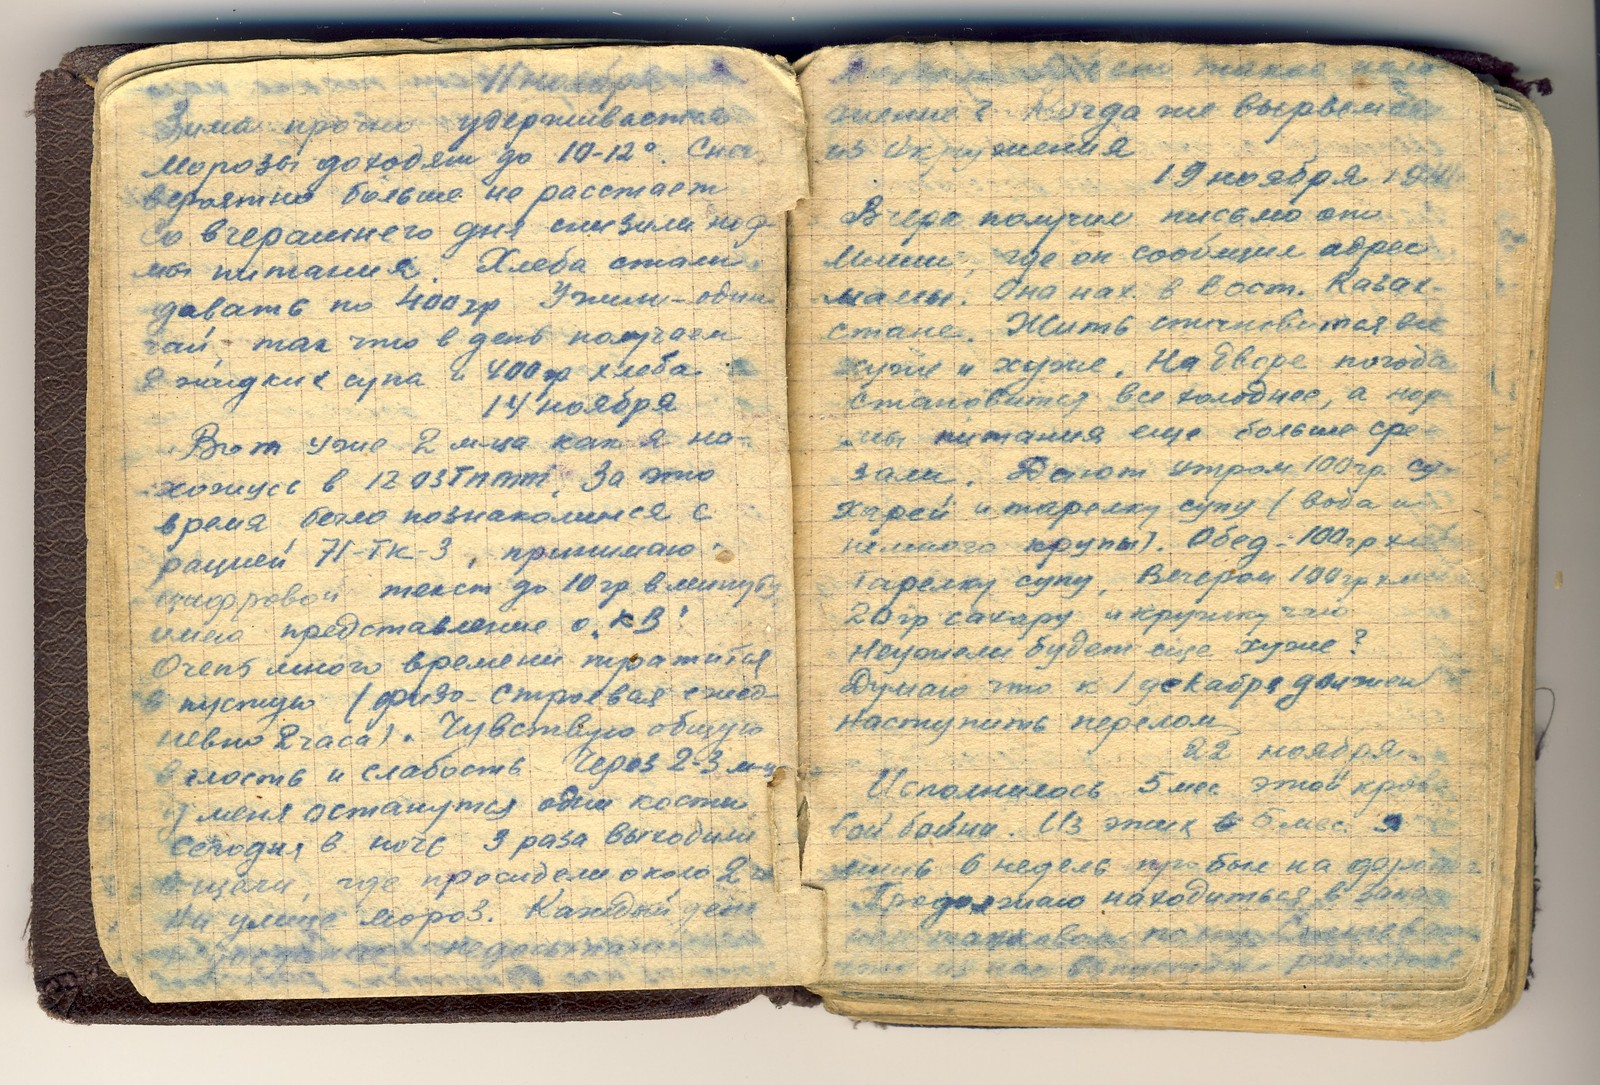 11 ноября
Зима прочно удерживается
Морозы доходят до 10-12°. Снег
вероятно больше не растает
Со вчерашнего дня снизили нор-
мы питания. Хлеба стали
давать по 400 гр Ужин-один
чай, так что в день получаем
2 жидких супа и 400 гр хлеба
14 ноября
Вот уже 2 м-ца как я на-
хожусь в 12 озтптт. За это
время было познакомился с
рацией 71-ТК-3, принимаю
цифровой текст до 10 гр в минуту
имею представление о "КВ"
Очень много времени тратится
в пустую (физо- строевая ежед-
невно 2 часа). Чувствую общую
вялость и слабость Через 2-3 м-ца
у меня останутся одни кости
Сегодня в ночь 3 раза выходили
в щели, где просидели около 2
На улице мороз. Каждый день
недосыпаю
есть такое поло
жение? Когда же вырвемся
из окружения
19 ноября 1941
Вчера получил письмо от
Миши, где он сообщил адрес
мамы. Она нах. в Вост. Казах-
стане. Жить становится все
хуже и хуже. На дворе погода
становится все холоднее, а нор
мы питания еще больше сре-
зали. Дают утром 100 гр су-
харей и тарелку супу (вода и
немного крупы). Обед-100 гр хлеба
тарелку супу, Вечером 100 гр хлеба
20 гр сахару и кружку чаю
Неужели будет еще хуже?
Думаю что к 1 декабря должен
наступить перелом
22 ноября.
Исполнилось 5 мес этой крова
вой бойни. Из этих 5 мес. я
лишь 6 недель пробыл на фронте
Продолжаю находиться в запас
ном танковом полку
из нас радистов